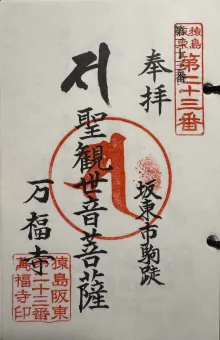 猿島
阪東
第二十三番
奉拝
坂東市駒跿
聖観世音菩薩
万福寺
猿島阪東
第二十三番
萬福寺印